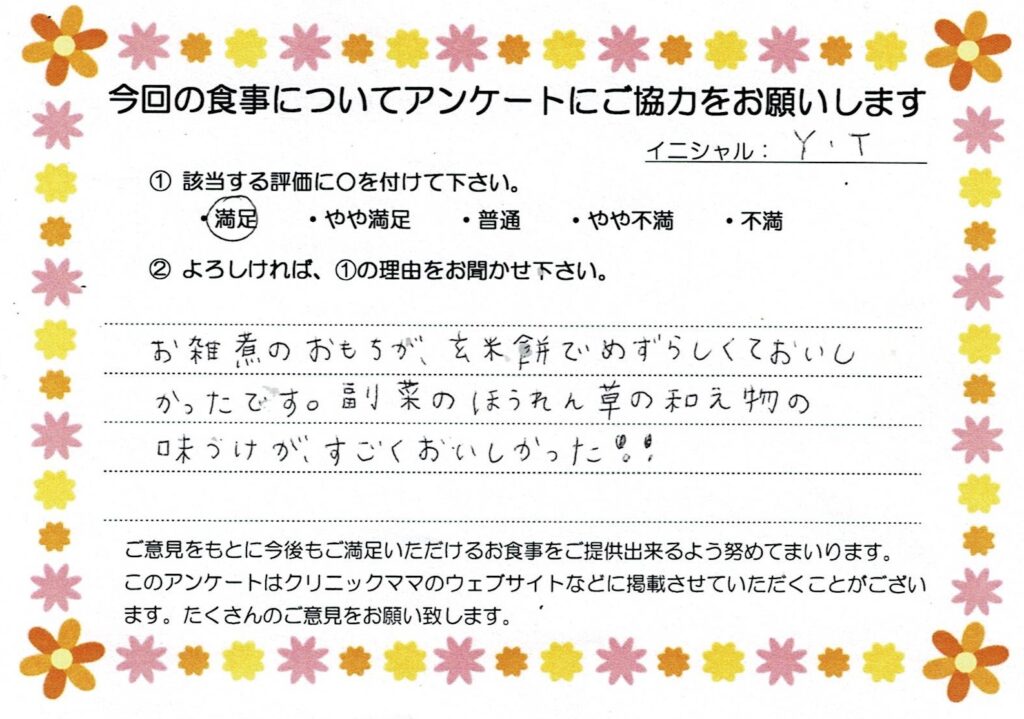 今回の食事についてアンケートにご協力をお願いします
イニシャル： Y・T
① 該当する評価に〇を付けて下さい。
・満足 ・やや満足 ・普通 ・やや不満 ・不満
② よろしければ、①の理由をお聞かせ下さい。
お雑煮のおもちが、玄米餅でめずらしくておいし
かったです。副菜のほうれん草の和え物の
味つけが、すごくおいしかった!!
ご意見をもとに今後もご満足いただけるお食事をご提供出来るよう努めてまいります。
このアンケートはクリニックママのウェブサイトなどに掲載させていただくことがござい
ます。たくさんのご意見をお願い致します。